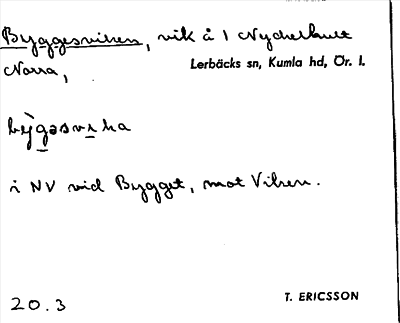 Byggesviken, vik å 1 Nydrerhult
Norra, Lerbäcks sn, Kumla hd, Ör. l.
i NV vid Bygget, mot Viken.
20.3 T. ERICSSON